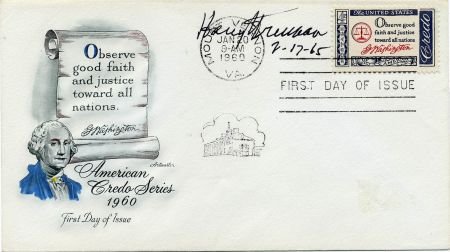 Observe
good faith
and justice
toward all
nations.
G Washington
Artmaster
American
Credo Series
1960
First Day of Issue
MOUNT VERNON
JAN 20
9-AM
1960
VA.
Harry Truman
2-17-65
FIRST DAY OF ISSUE
THE UNITED STATES
Observe good
faith and justice
toward all nations
G Washington
Credo